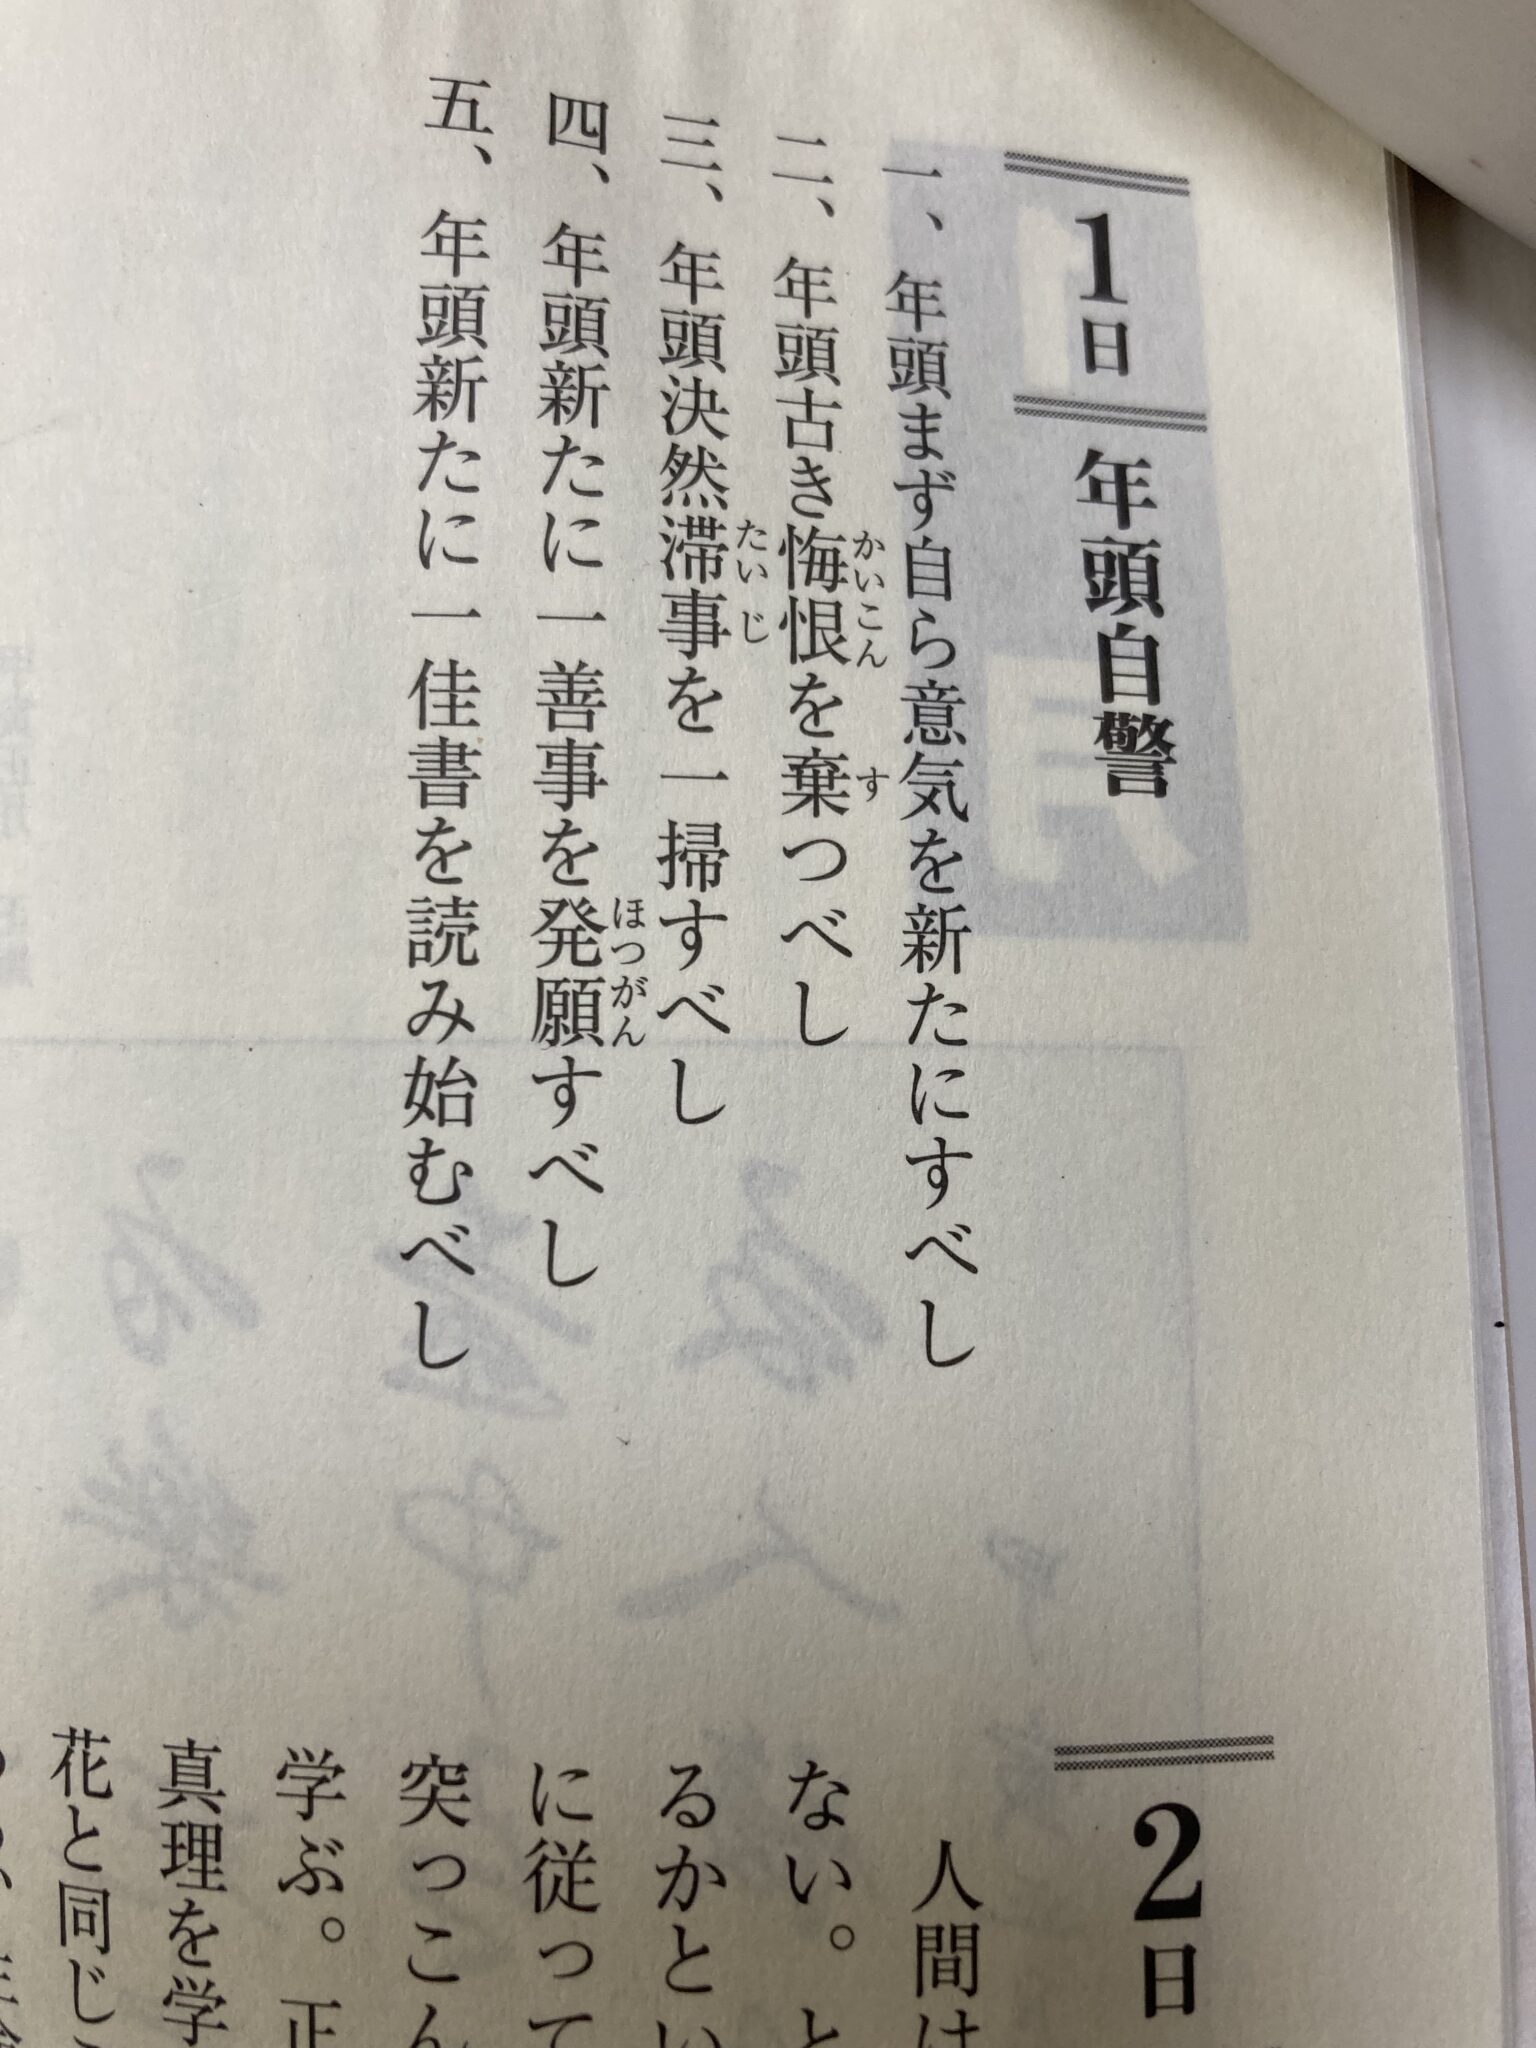 1日 年頭自警
一、年頭まず自ら意気を新たにすべし
二、年頭古き悔恨を棄つべし
かいこん す
三、年頭決然滞事を一掃すべし
たいじ
四、年頭新たに一善事を発願すべし
ほつがん
五、年頭新たに一佳書を読み始むべし
2日
人間は
ない。と
るかとい
に従って
突っこん
学ぶ。正
真理を学
花と同じこ